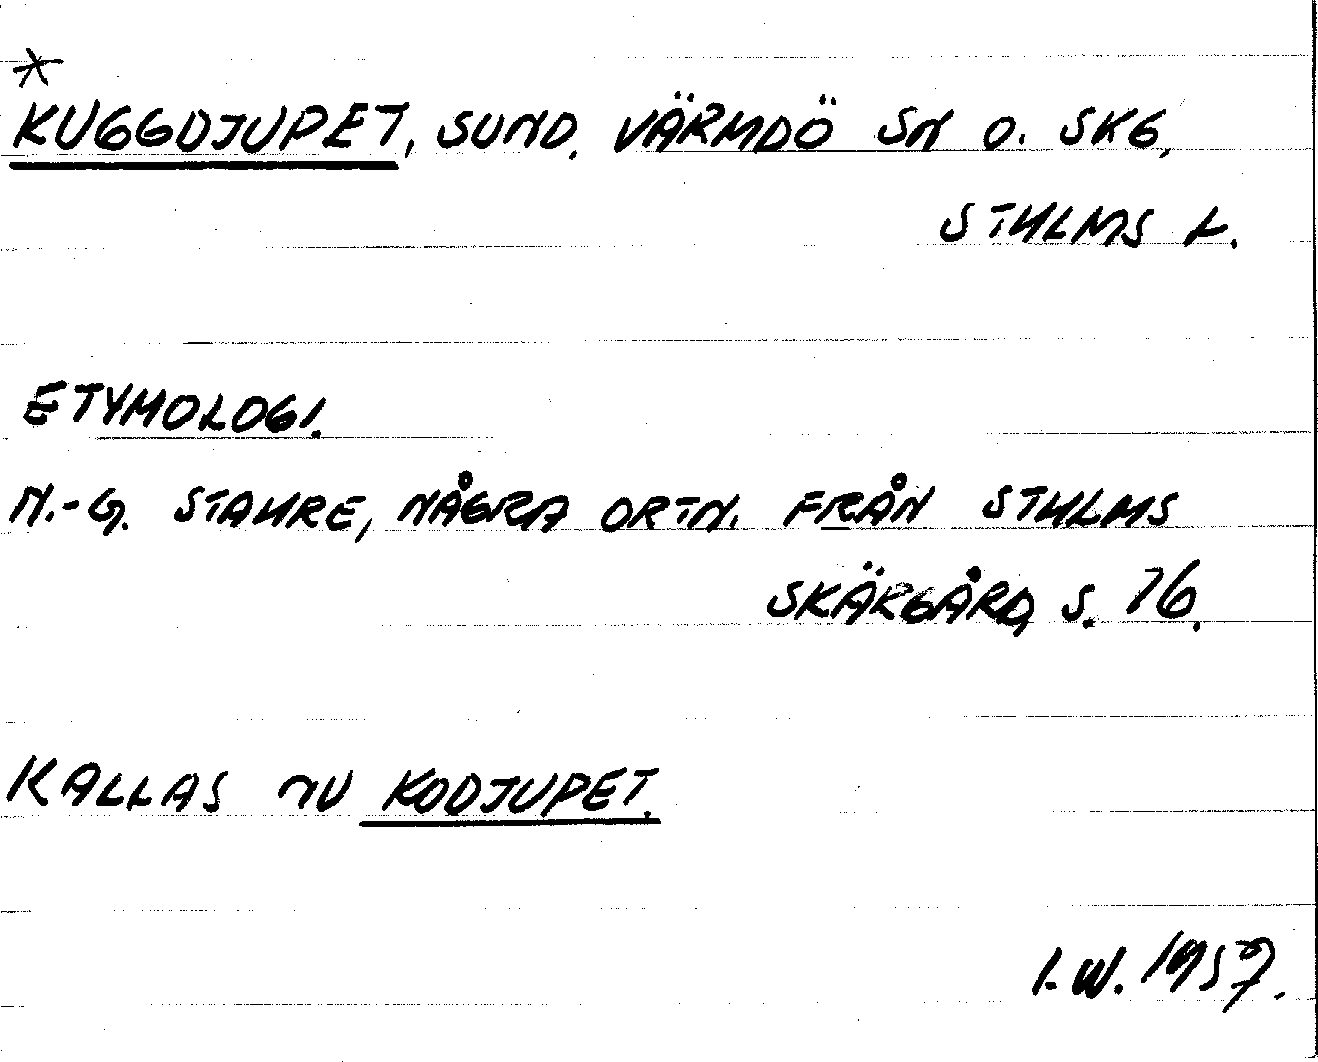 *
KUGGDJUPET, SUND. VÄRMDÖ SN O. SKG,
STHLMS L.
ETYMOLOGI.
N.-G. STAHRE, NÅGRA ORTN. FRÅN STHLMS
SKÄRGÅRD, S. 76.
KALLAS NU KODJUPET.
I.W. 1957.